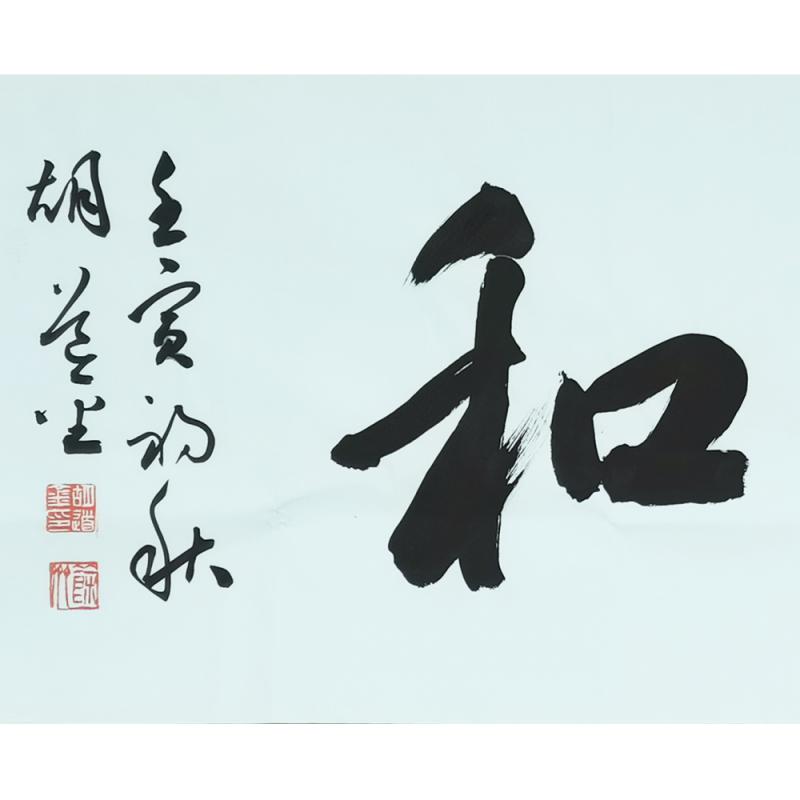 和
壬寅初秋
胡道